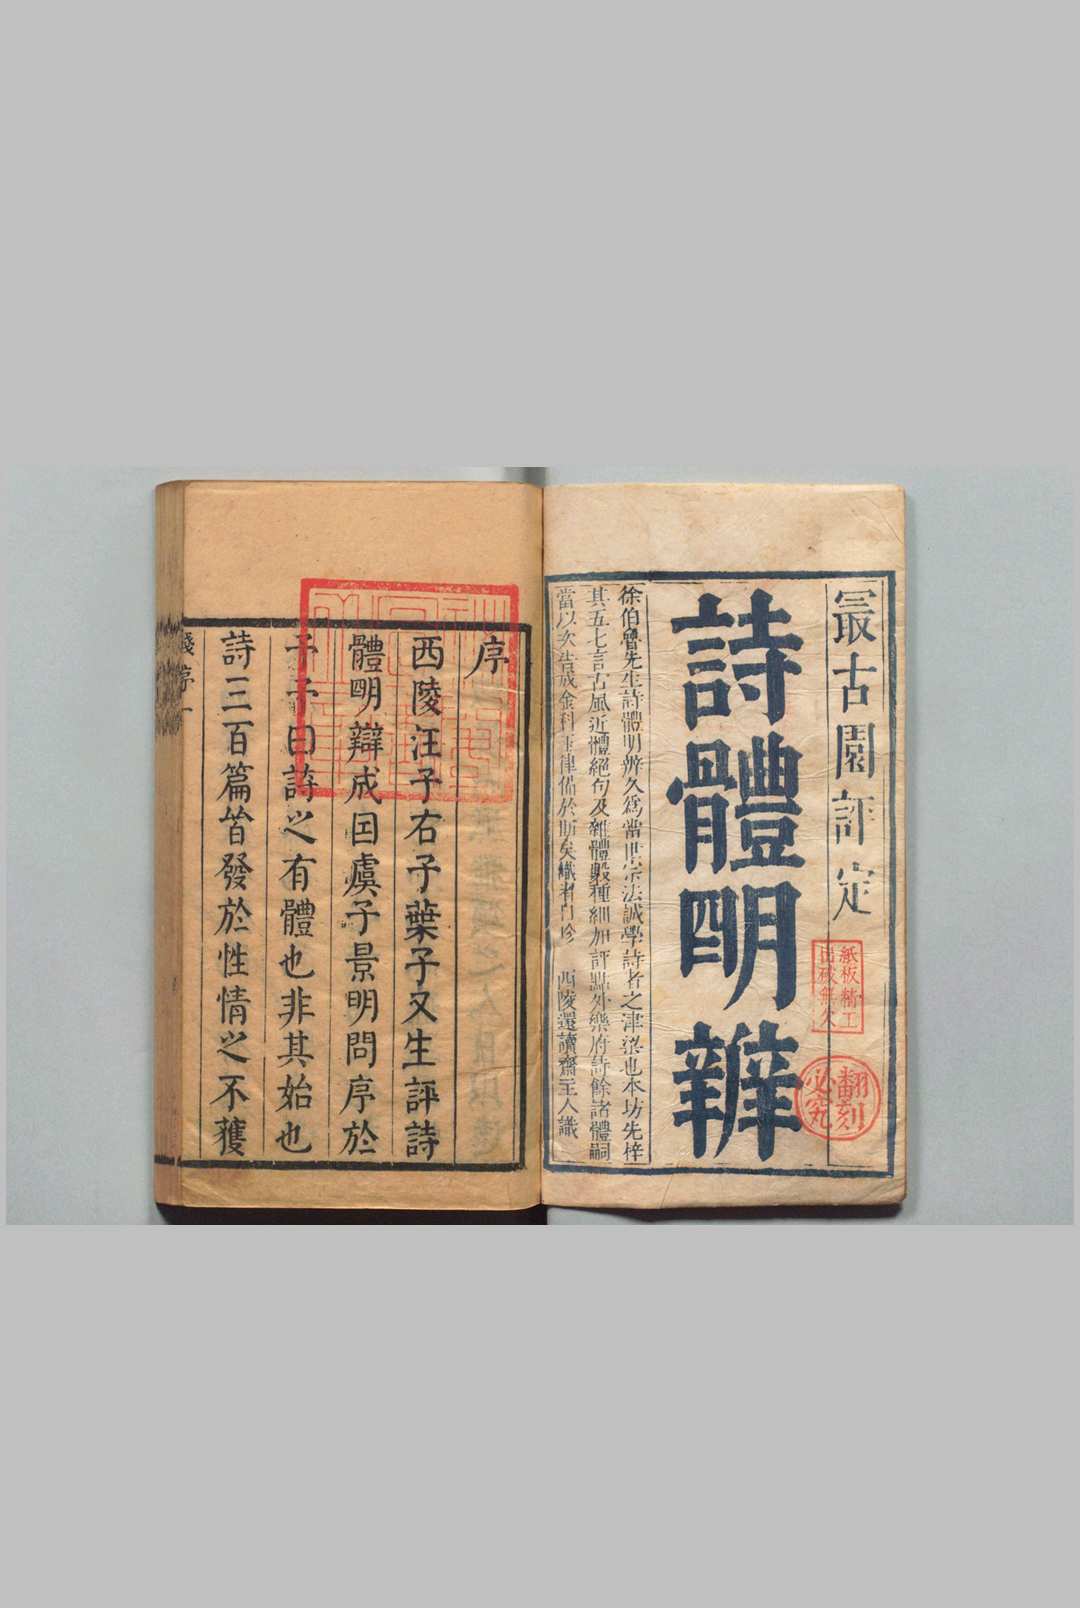 冣古園評定
紙板精工
翻刻
必究
詩體明辨
徐伯魯先生詩體明辨久爲當世宗法誠學詩者之津梁也本坊先梓
其五七言古風近體絕句及雜體數種細加評點外樂府詩餘諸體嗣
當以次告成金科玉律備於斯矣識者自珍 西陵還讀齋主人識
序
西陵汪子右子葉子又生評詩
體明辯成因虞子景明問序於
子子曰詩之有體也非其始也
詩三百篇皆發於性情之不獲
序一